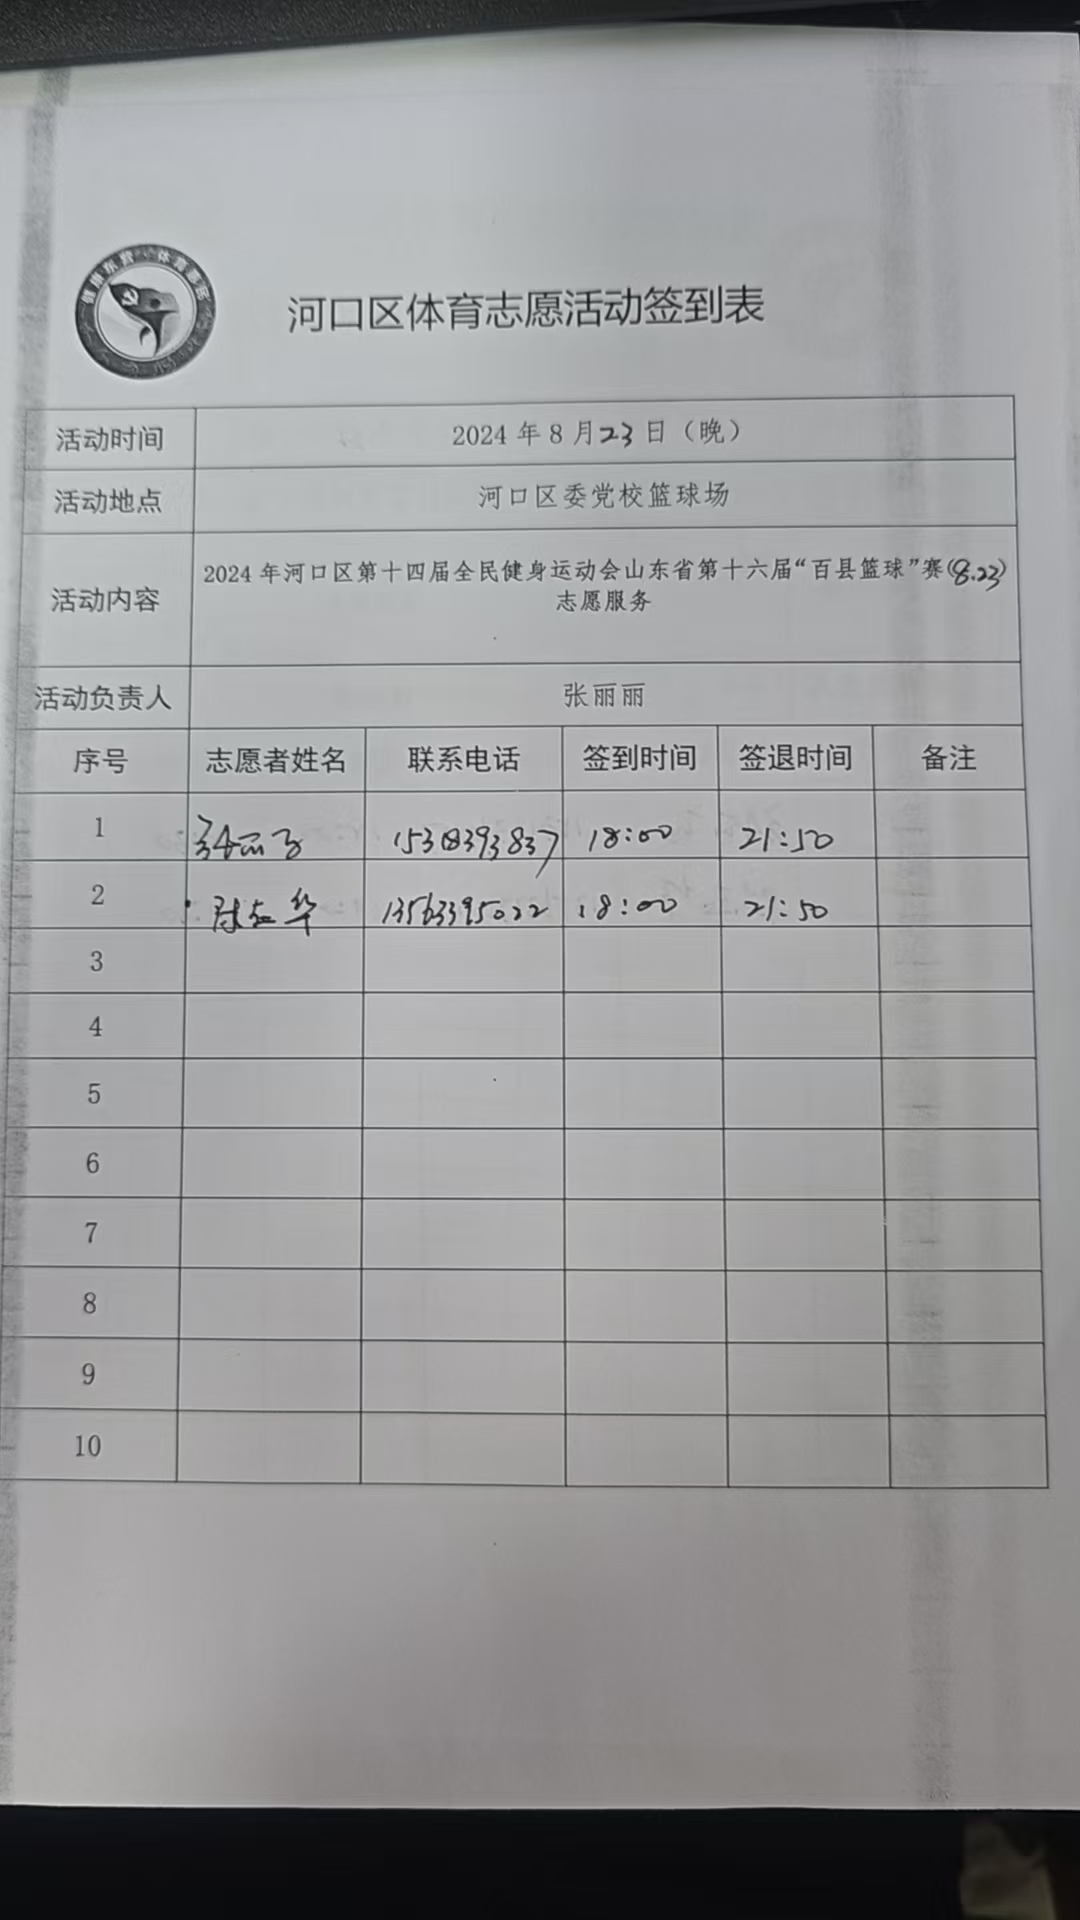 河口区体育志愿活动签到表
活动时间 2024 年 8 月 23 日（晚）
活动地点 河口区委党校篮球场
活动内容 2024 年河口区第十四届全民健身运动会山东省第十六届“百县篮球”赛(8.23)
志愿服务
活动负责人 张丽丽
序号 志愿者姓名 联系电话 签到时间 签退时间 备注
1 18:00 21:50
2 13563395022 18:00 21:50
3
4
5
6
7
8
9
10